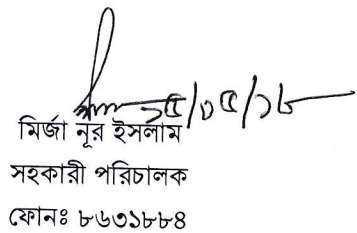 ১৫/০৫/১৮
মির্জা নূর ইসলাম
সহকারী পরিচালক
ফোনঃ ৮৬৩১৮৮৪